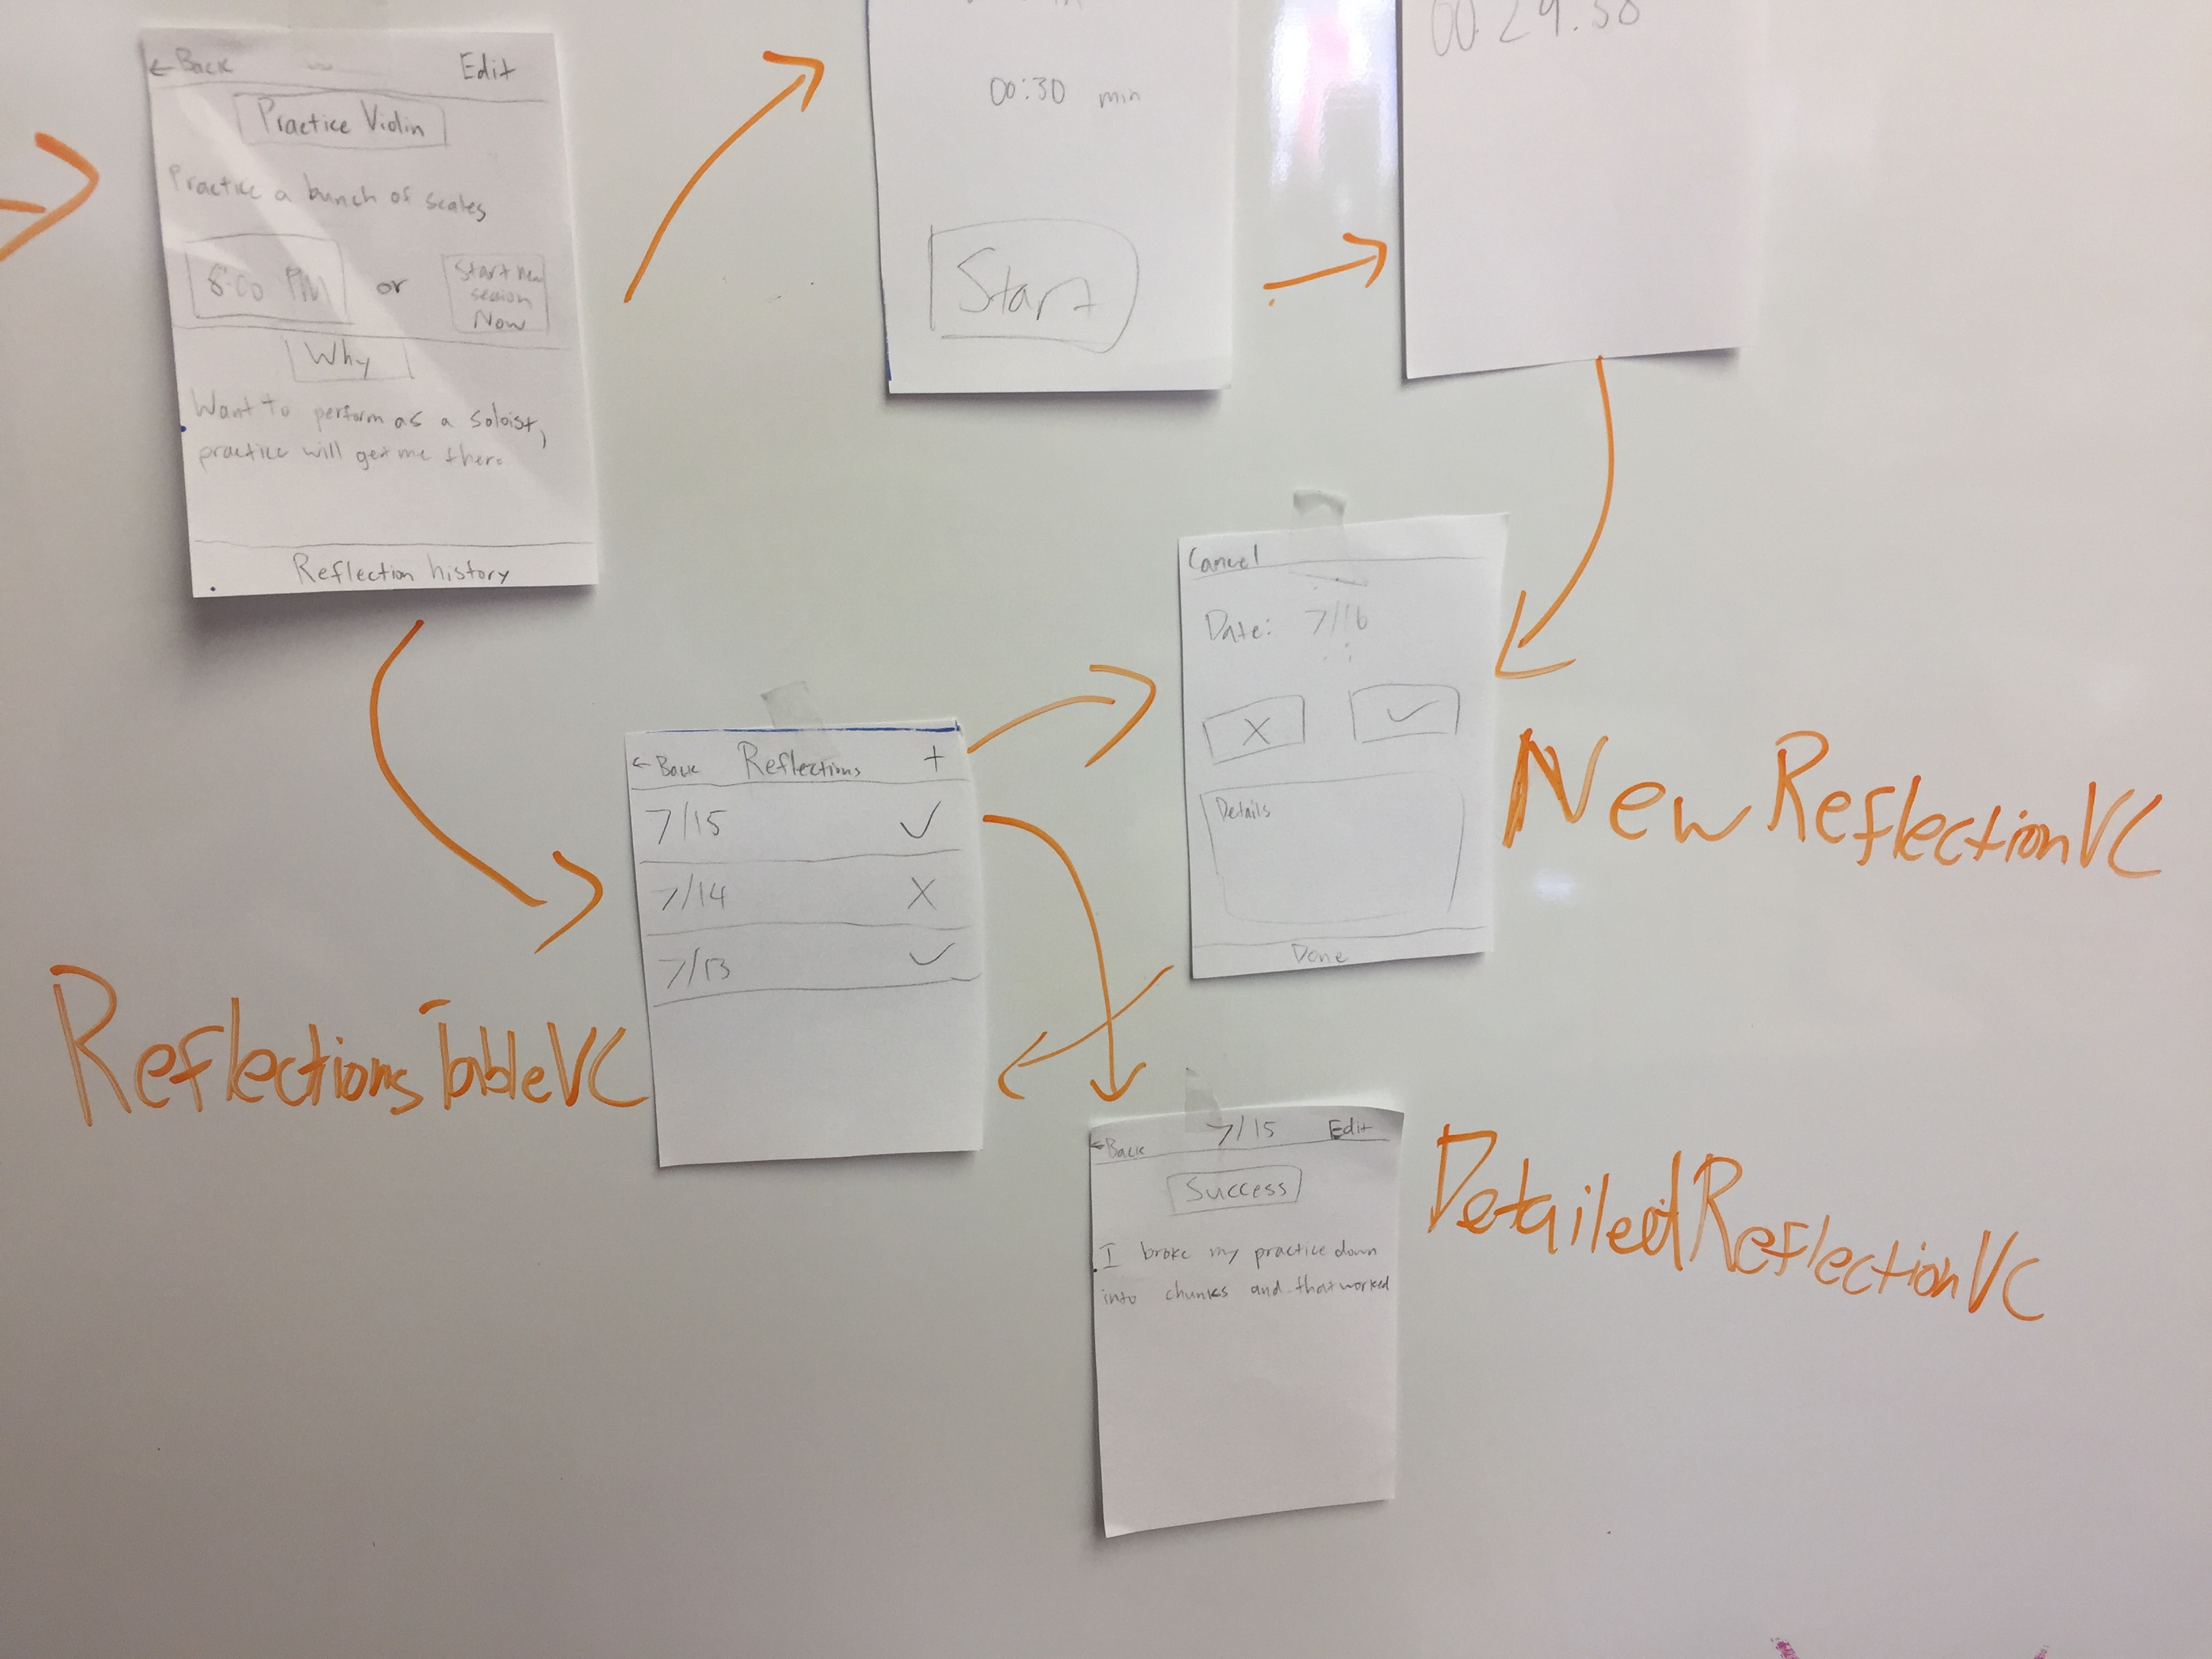 ← Back
Edit
Practice Violin
Practice a bunch of scales
8:00 PM
or
Start new
session
Now
Why
Want to perform as a soloist,
practice will get me there
Reflection history
00:30 min
Start
00 29.
Cancel
Date: 7/16
X
✓
Details
Done
NewReflectionVC
← Back
Reflections
+
7/15
✓
7/14
X
7/13
✓
ReflectionsTableVC
← Back
7/15
Edit
Success
I broke my practice down
into chunks and that worked
DetailedReflectionVC